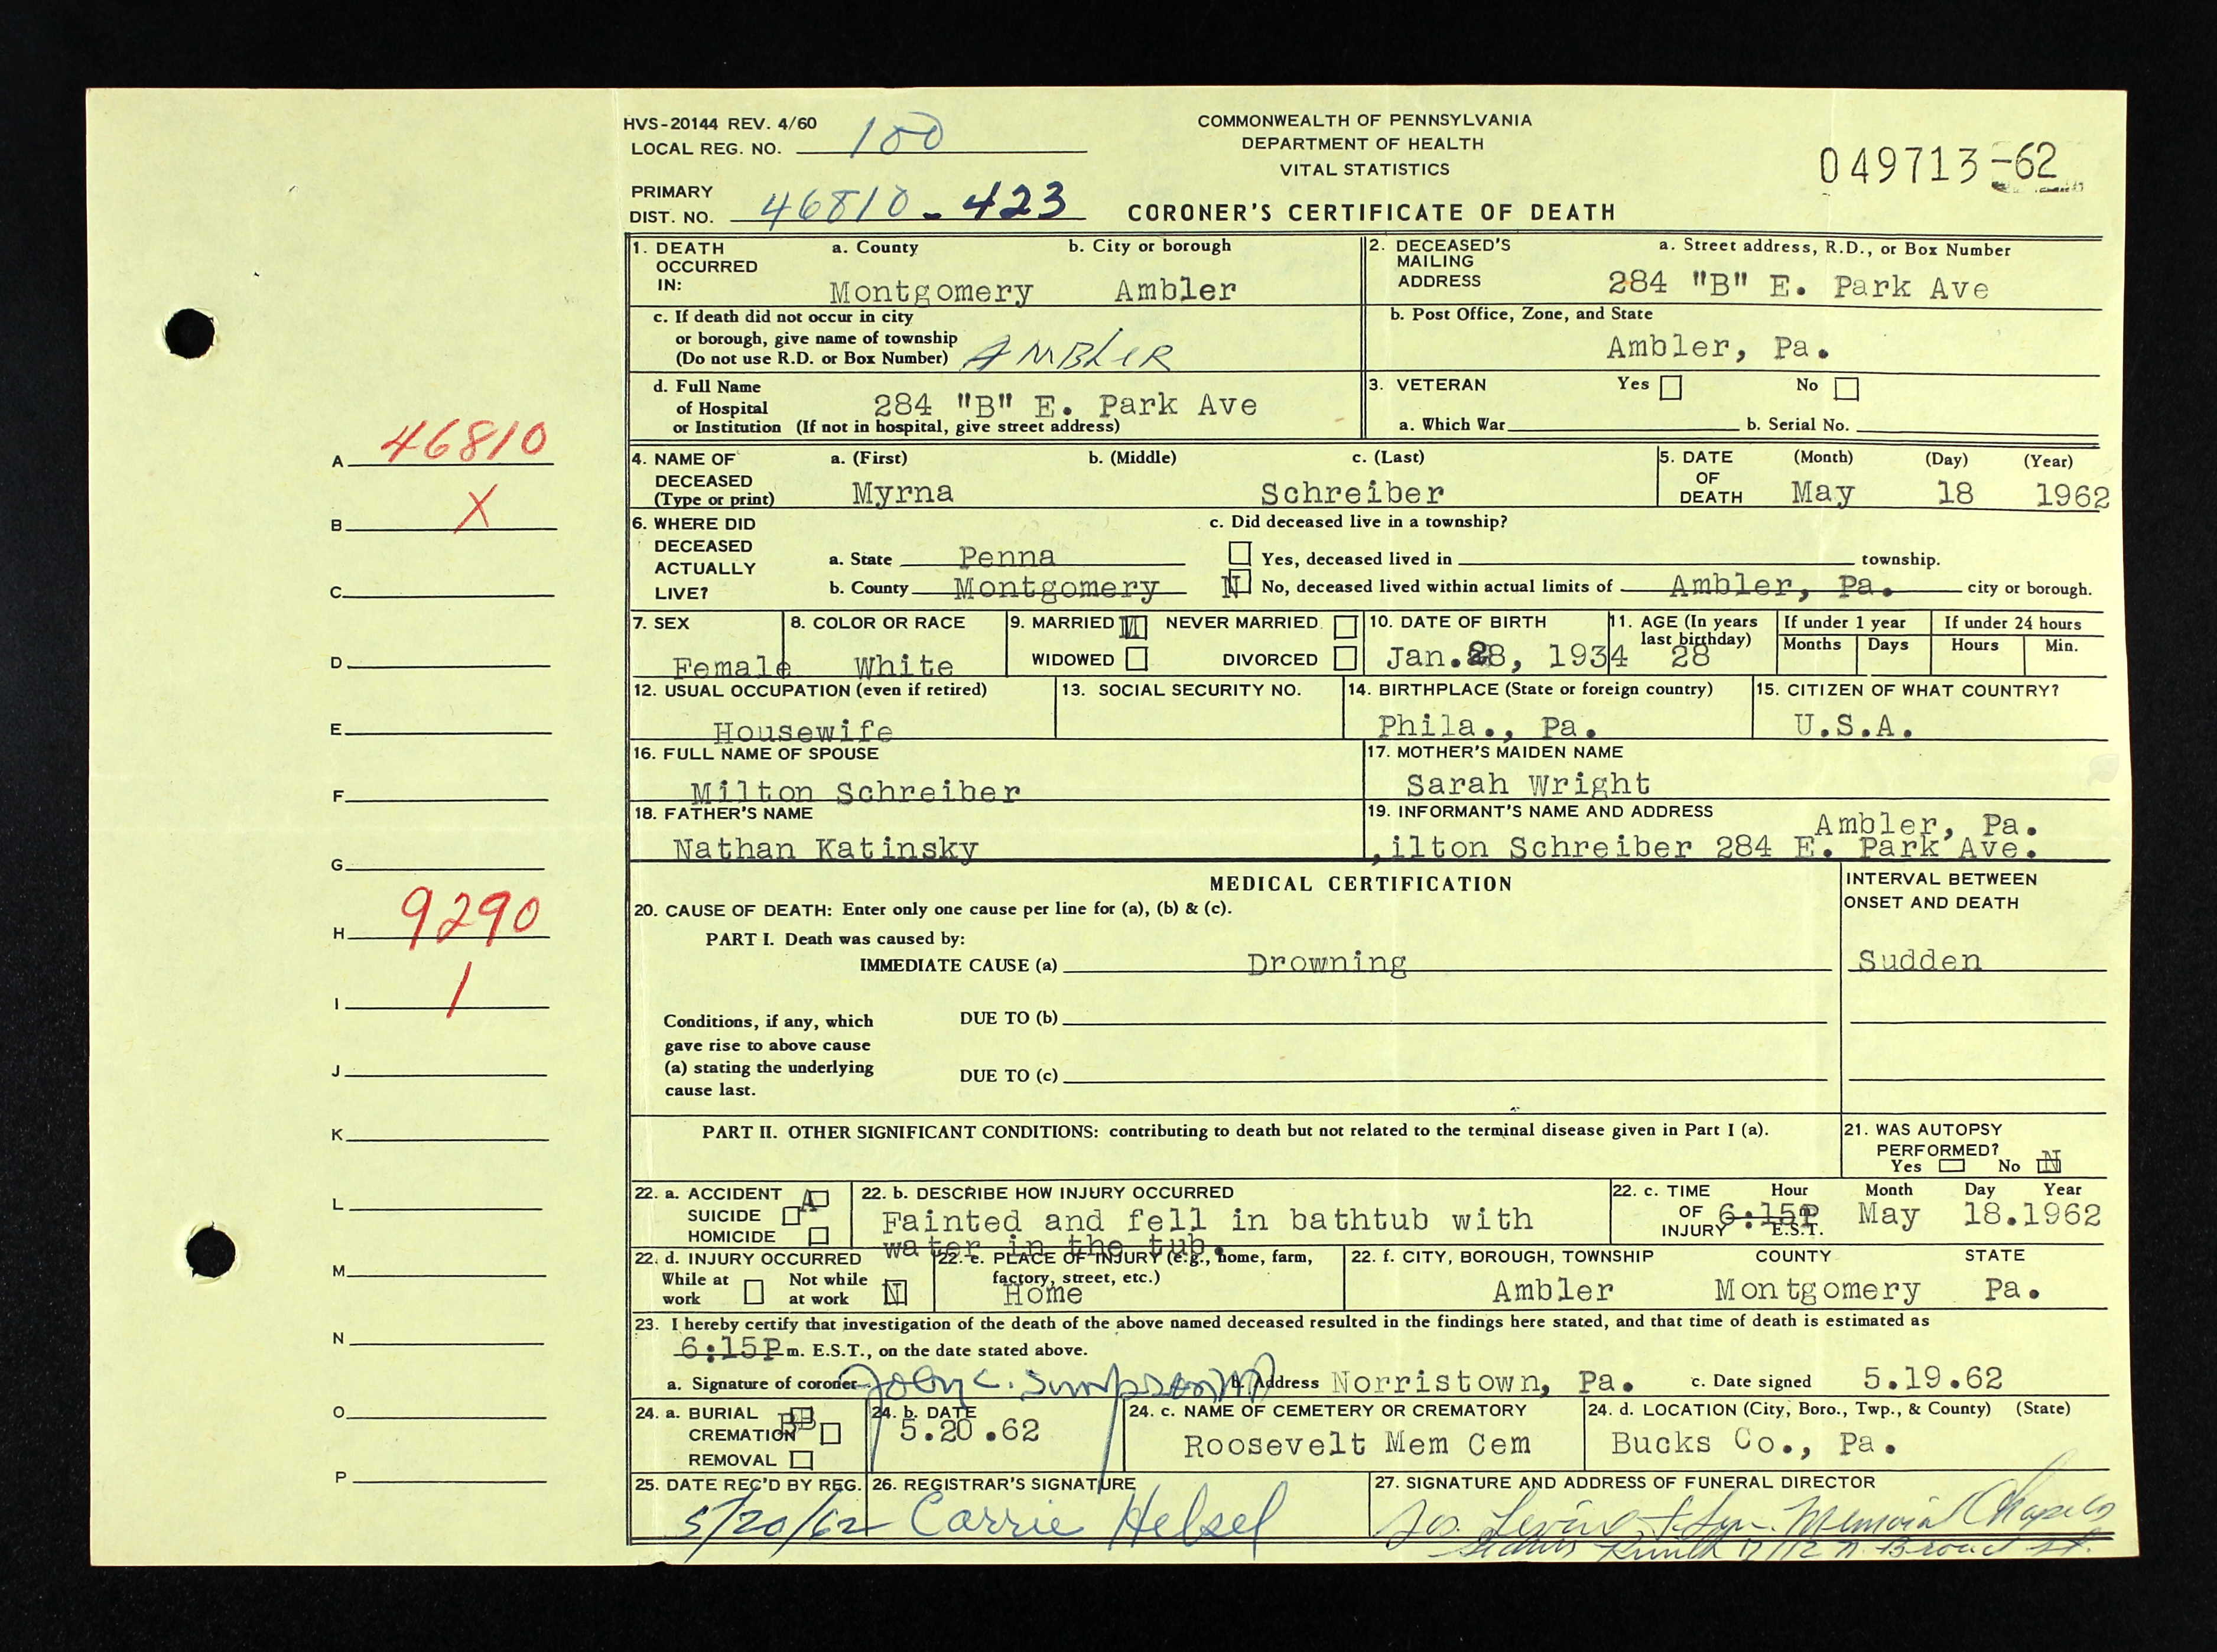 HVS-20144 REV. 4/60
LOCAL REG. NO. 100
COMMONWEALTH OF PENNSYLVANIA
DEPARTMENT OF HEALTH
VITAL STATISTICS
049713-62
PRIMARY
DIST. NO. 46810-423
CORONER'S CERTIFICATE OF DEATH
1. DEATH OCCURRED IN: a. County b. City or borough
Montgomery Ambler
c. If death did not occur in city
or borough, give name of township
(Do not use R.D. or Box Number) AMBLER
d. Full Name
of Hospital 284 "B" E. Park Ave
or Institution (If not in hospital, give street address)
2. DECEASED'S MAILING ADDRESS a. Street address, R.D., or Box Number
284 "B" E. Park Ave
b. Post Office, Zone, and State
Ambler, Pa.
3. VETERAN Yes No
a. Which War b. Serial No.
4. NAME OF DECEASED (Type or print) a. (First) b. (Middle) c. (Last)
Myrna Schreiber
5. DATE OF DEATH (Month) (Day) (Year)
May 18 1962
6. WHERE DID DECEASED ACTUALLY LIVE?
a. State Penna
b. County Montgomery
c. Did deceased live in a township?
Yes, deceased lived in township.
N No, deceased lived within actual limits of Ambler, Pa. city or borough.
7. SEX
Female
8. COLOR OR RACE
White
9. MARRIED M NEVER MARRIED
WIDOWED DIVORCED
10. DATE OF BIRTH
Jan.28, 1934
11. AGE (In years last birthday)
28
If under 1 year
Months Days
If under 24 hours
Hours Min.
12. USUAL OCCUPATION (even if retired)
Housewife
13. SOCIAL SECURITY NO.
14. BIRTHPLACE (State or foreign country)
Phila., Pa.
15. CITIZEN OF WHAT COUNTRY?
U.S.A.
16. FULL NAME OF SPOUSE
Milton Schreiber
17. MOTHER'S MAIDEN NAME
Sarah Wright
18. FATHER'S NAME
Nathan Katinsky
19. INFORMANT'S NAME AND ADDRESS
Ambler, Pa.
,ilton Schreiber 284 E. Park Ave.
MEDICAL CERTIFICATION
INTERVAL BETWEEN
ONSET AND DEATH
20. CAUSE OF DEATH: Enter only one cause per line for (a), (b) & (c).
PART I. Death was caused by:
IMMEDIATE CAUSE (a) Drowning Sudden
Conditions, if any, which
gave rise to above cause
(a) stating the underlying
cause last.
DUE TO (b)
DUE TO (c)
PART II. OTHER SIGNIFICANT CONDITIONS: contributing to death but not related to the terminal disease given in Part I (a).
21. WAS AUTOPSY
PERFORMED?
Yes No N
22. a. ACCIDENT A
SUICIDE
HOMICIDE
22. b. DESCRIBE HOW INJURY OCCURRED
Fainted and fell in bathtub with
water in the tub.
22. c. TIME OF INJURY Hour Month Day Year
6:15P E.S.T. May 18.1962
22. d. INJURY OCCURRED
While at work Not while at work N
22. e. PLACE OF INJURY (e.g., home, farm,
factory, street, etc.)
Home
22. f. CITY, BOROUGH, TOWNSHIP COUNTY STATE
Ambler Montgomery Pa.
23. I hereby certify that investigation of the death of the above named deceased resulted in the findings here stated, and that time of death is estimated as
6:15P m. E.S.T., on the date stated above.
a. Signature of coroner John C. Simpson MD b. Address Norristown, Pa. c. Date signed 5.19.62
24. a. BURIAL
CREMATION
REMOVAL
24. b. DATE
5.20.62
24. c. NAME OF CEMETERY OR CREMATORY
Roosevelt Mem Cem
24. d. LOCATION (City, Boro., Twp., & County) (State)
Bucks Co., Pa.
25. DATE REC'D BY REG.
5/20/62
26. REGISTRAR'S SIGNATURE
Carrie Helsel
27. SIGNATURE AND ADDRESS OF FUNERAL DIRECTOR
Jos. Levine & Son. Memorial Chapels
7112 N. Broad St.
A 46810
B X
C
D
E
F
G
H 9290
I 1
J
K
L
M
N
O
P